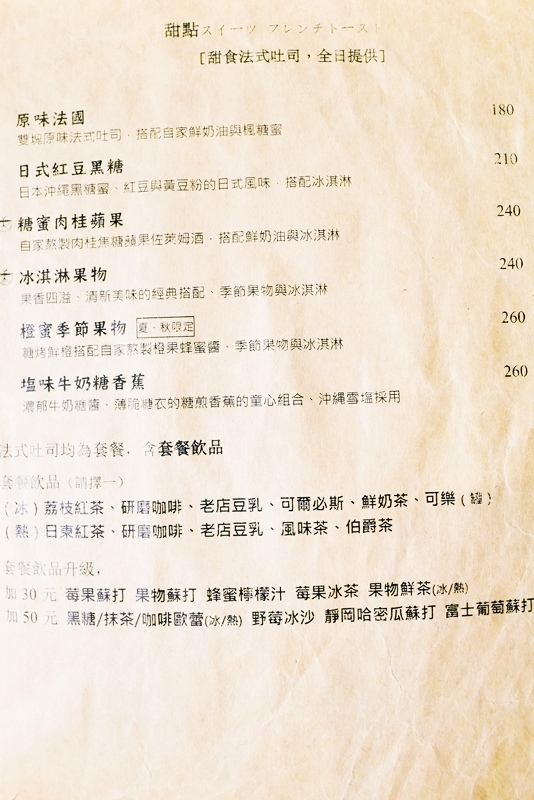 甜點スイーツ フレンチトースト
[甜食法式吐司，全日提供]
原味法國 180
雙塊原味法式吐司．搭配自家鮮奶油與楓糖蜜
日式紅豆黑糖 210
日本沖繩黑糖蜜、紅豆與黃豆粉的日式風味．搭配冰淇淋
糖蜜肉桂蘋果 240
自家熬製肉桂焦糖蘋果佐萊姆酒．搭配鮮奶油與冰淇淋
冰淇淋果物 240
果香四溢．清新美味的經典搭配、季節果物與冰淇淋
橙蜜季節果物 夏．秋限定 260
糖烤鮮橙搭配自家熬製橙果蜂蜜醬、季節果物與冰淇淋
塩味牛奶糖香蕉 260
濃郁牛奶糖醬．薄脆糖衣的糖煎香蕉的童心組合、沖縄雪塩採用
法式吐司均為套餐，含套餐飲品
套餐飲品（請擇一）
（冰）荔枝紅茶、研磨咖啡、老店豆乳、可爾必斯、鮮奶茶、可樂（罐）
（熱）日東紅茶、研磨咖啡、老店豆乳、風味茶、伯爵茶
套餐飲品升級，
加 30 元 莓果蘇打 果物蘇打 蜂蜜檸檬汁 莓果冰茶 果物鮮茶(冰/熱)
加 50 元 黑糖/抹茶/咖啡歐蕾(冰/熱) 野莓冰沙 靜岡哈密瓜蘇打 富士葡萄蘇打